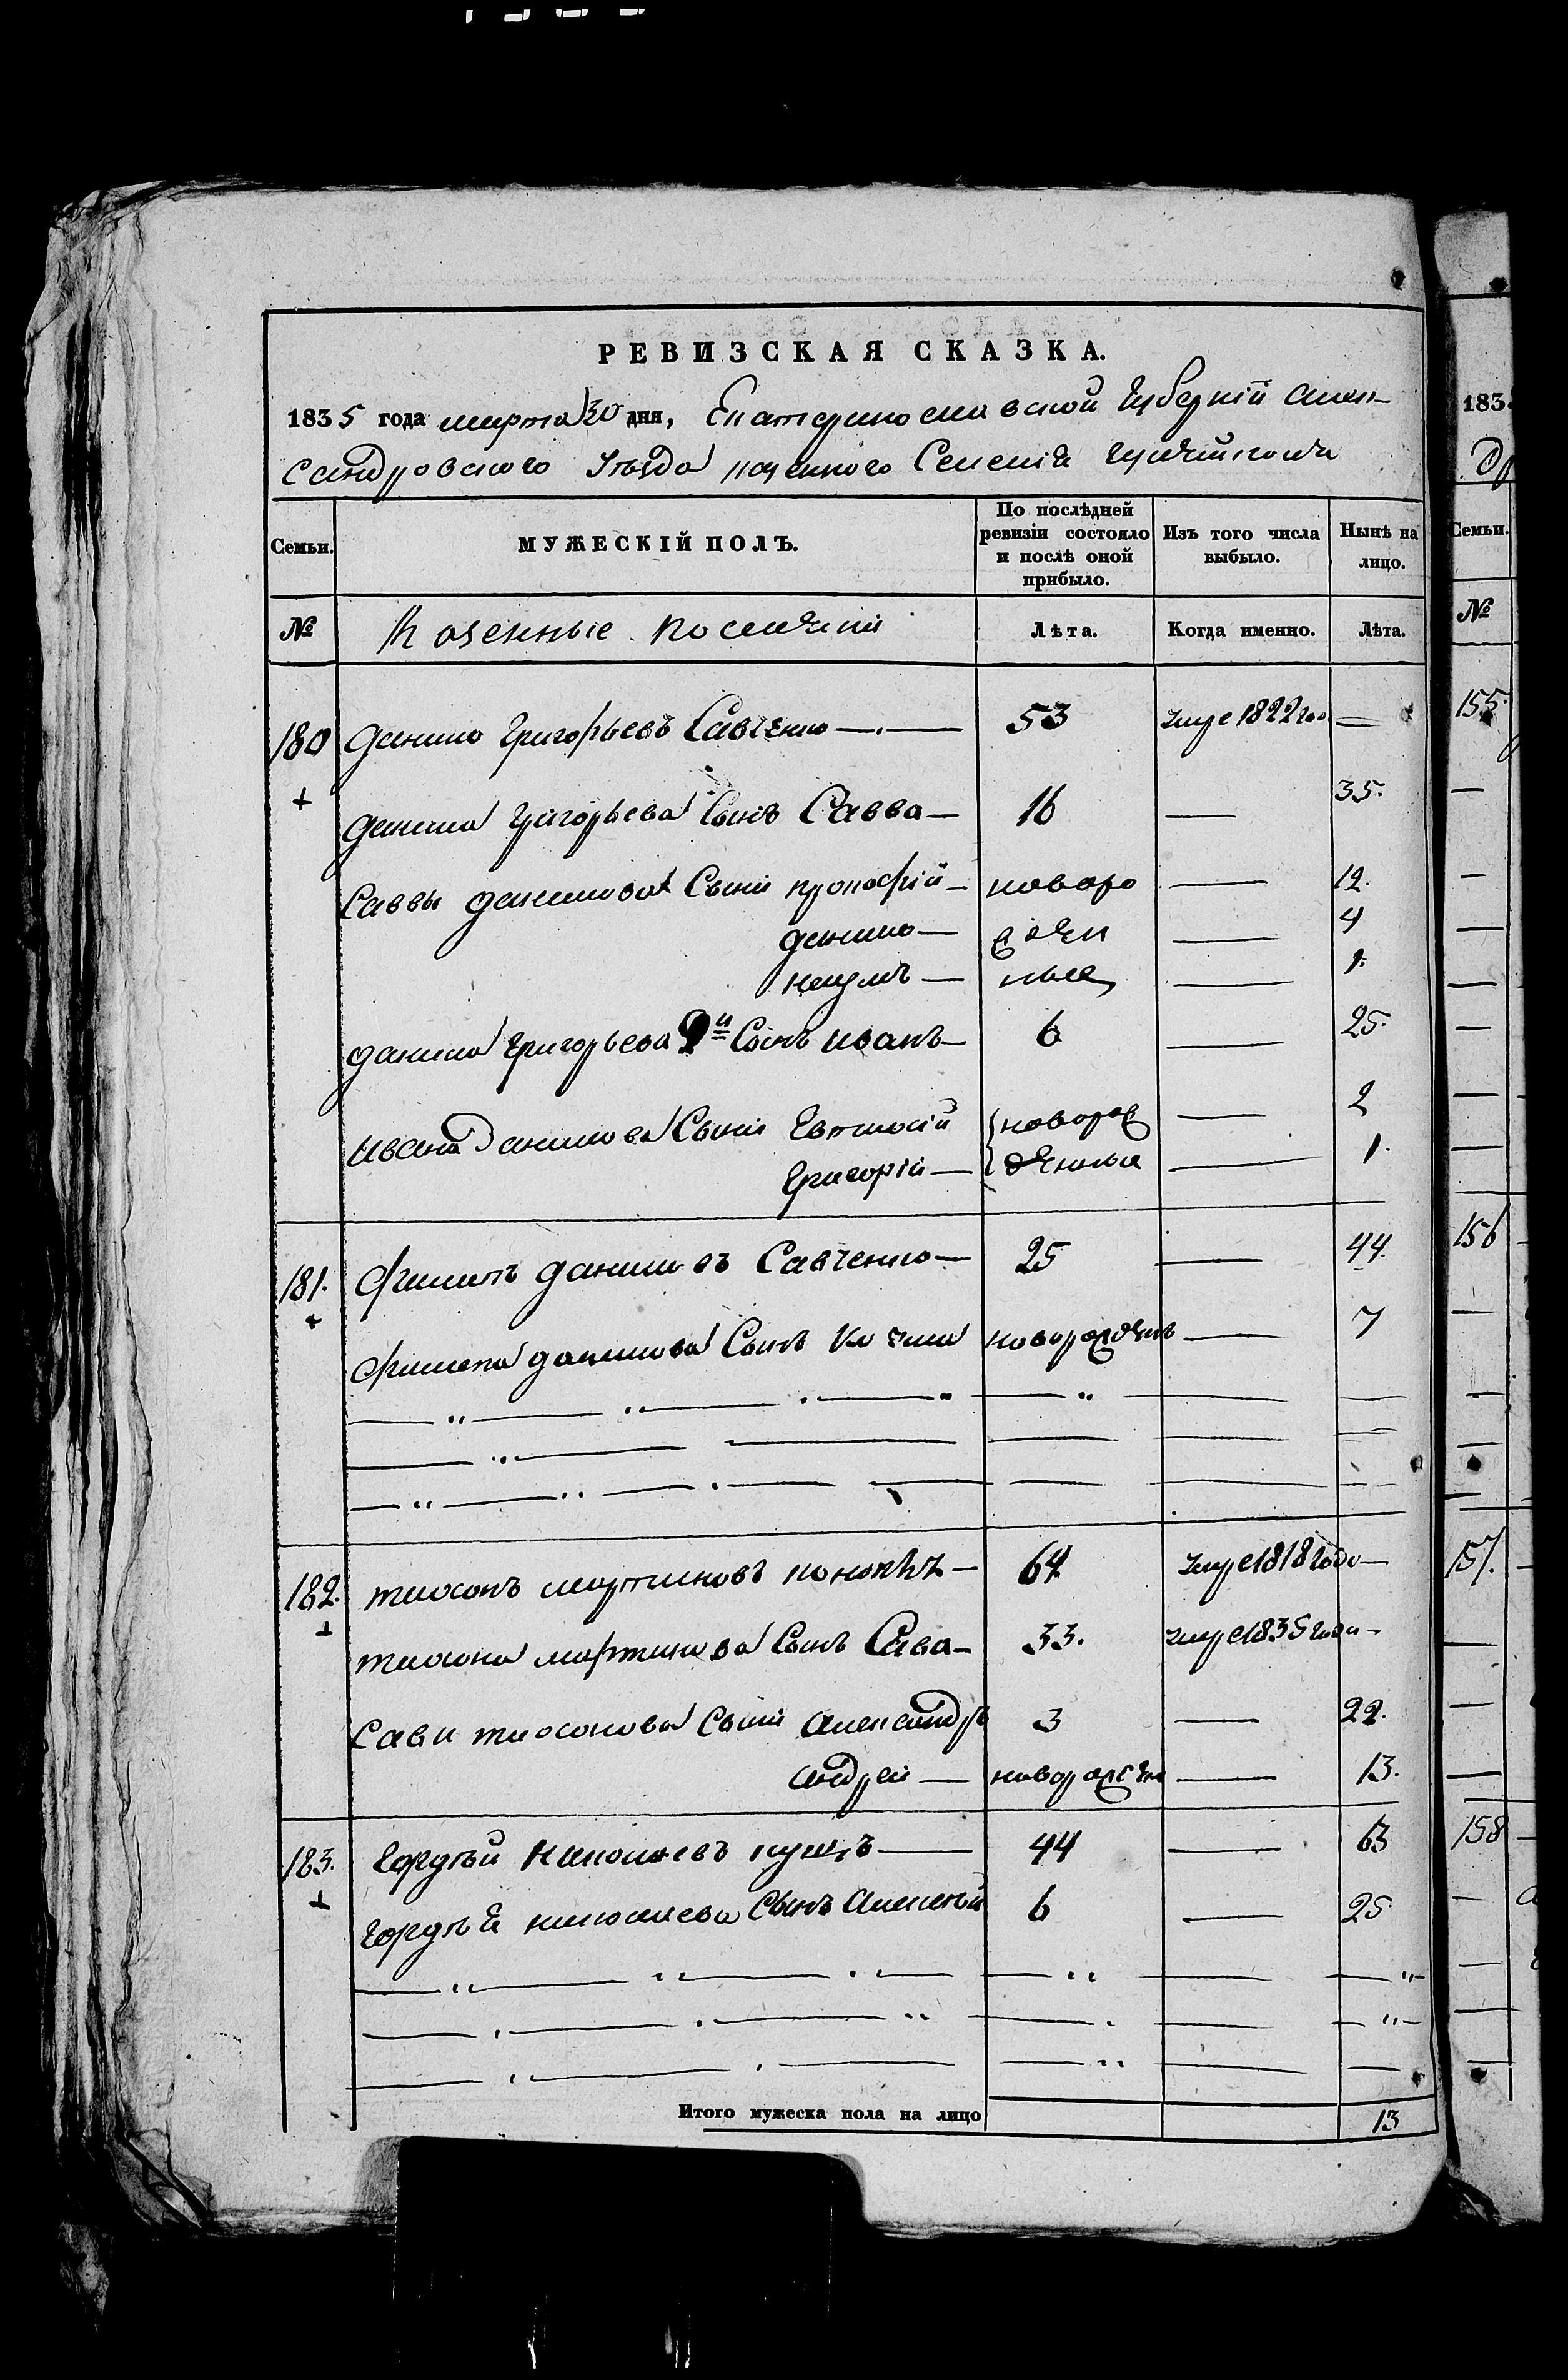 РЕВИЗСКАЯ СКАЗКА.
1835 года марта 30 дня, Екатеринославской Губерніи Алек-
сандровского Уѣзда казенного Селенія
Семьи. МУЖЕСКІЙ ПОЛЪ. По послѣдней ревизіи состояло и послѣ оной прибыло. Изъ того числа выбыло. Нынѣ на лицо.
№ Казенные поселяни Лѣта. Когда именно. Лѣта.
180 Данило Григорьевъ Савченко — 53 умре 1822 го —
+ Данила Григорьева Сынъ Савва — 16 — 35.
Саввы Данилова Сыни Прокофій — новоро — 12.
Данило — жден — 4
Наумъ — ные — 1.
Данила Григорьева 2й Сынъ Иванъ — 6 — 25.
Ивана Данилова Сыни Евтихій новорож — 2
Григорій — денные — 1.
181. Филипъ Даниловъ Савченко — 25 — 44.
+ Филипа Данилова Сынъ Козма новорожденъ — 7
182. Тихонъ Мартиновъ — 64 умре 1818 года —
+ Тихона Мартинова Сынъ Сава — 33. умре 1835 года —
Сави Тихонова Сыни Александръ 3 — 22.
Андрей — новорожден — 13.
183. Гордѣй Николаевъ — 44 — 63
+ Гордѣя Николаева Сынъ Алексѣй 6 — 25
Итого мужеска пола на лицо 13
183
Семьи.
№
155.
156
157.
158